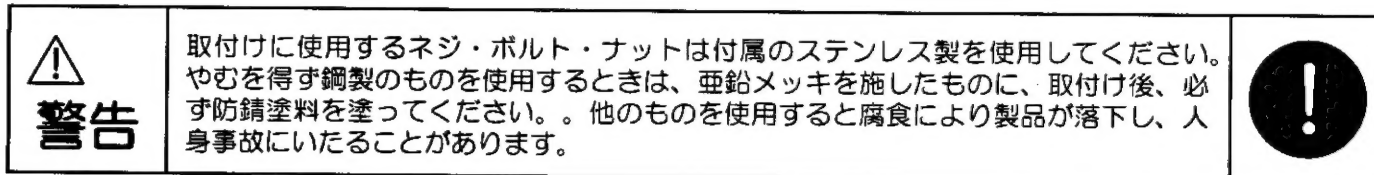 警告
取付けに使用するネジ・ボルト・ナットは付属のステンレス製を使用してください。
やむを得ず鋼製のものを使用するときは、亜鉛メッキを施したものに、取付け後、必
ず防錆塗料を塗ってください。。他のものを使用すると腐食により製品が落下し、人
身事故にいたることがあります。